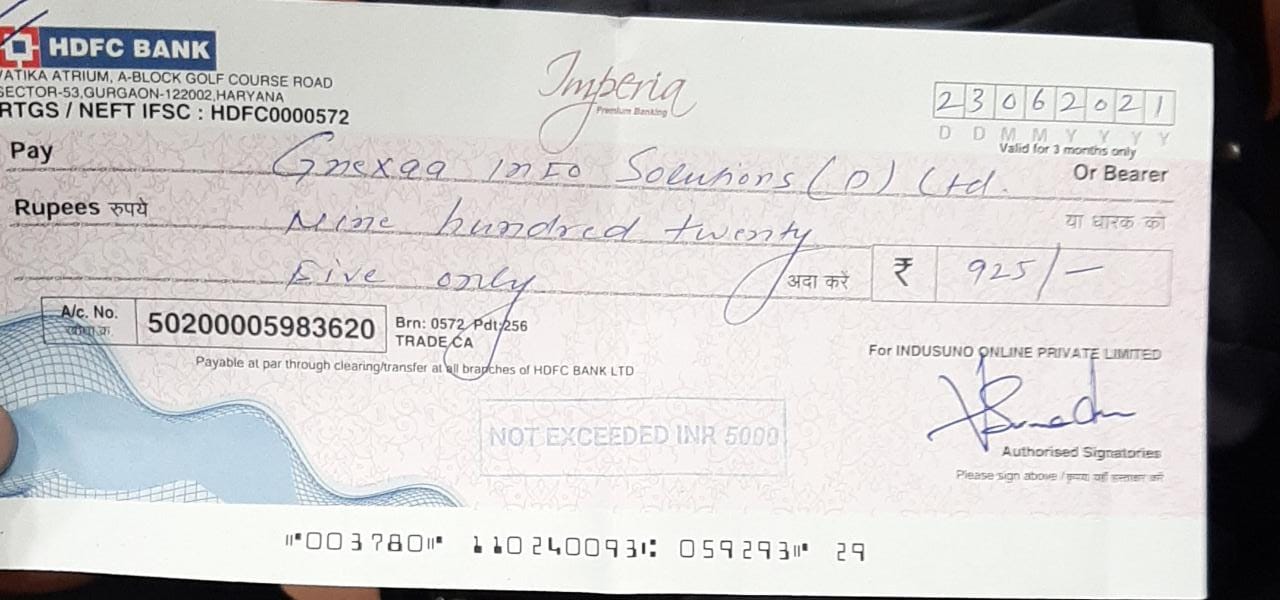 HDFC BANK
VATIKA ATRIUM, A-BLOCK GOLF COURSE ROAD
SECTOR-53, GURGAON-122002, HARYANA
RTGS / NEFT IFSC : HDFC0000572
Imperia
Premium Banking
23062021
D D M M Y Y Y Y
Valid for 3 months only
Pay Gnexaa Info Solutions (P) Ltd. Or Bearer
Rupees रुपये Nine hundred twenty या धारक को
Five only अदा करें ₹ 925/-
A/c. No. 50200005983620 Brn: 0572 Pdt:256
खाता क्र. TRADE CA
Payable at par through clearing/transfer at all branches of HDFC BANK LTD
For INDUSUNO ONLINE PRIVATE LIMITED
NOT EXCEEDED INR 5000
Authorised Signatories
Please sign above / कृपया यहाँ हस्ताक्षर करें
⑈003780⑈ 110240093⑆ 059293⑈ 29